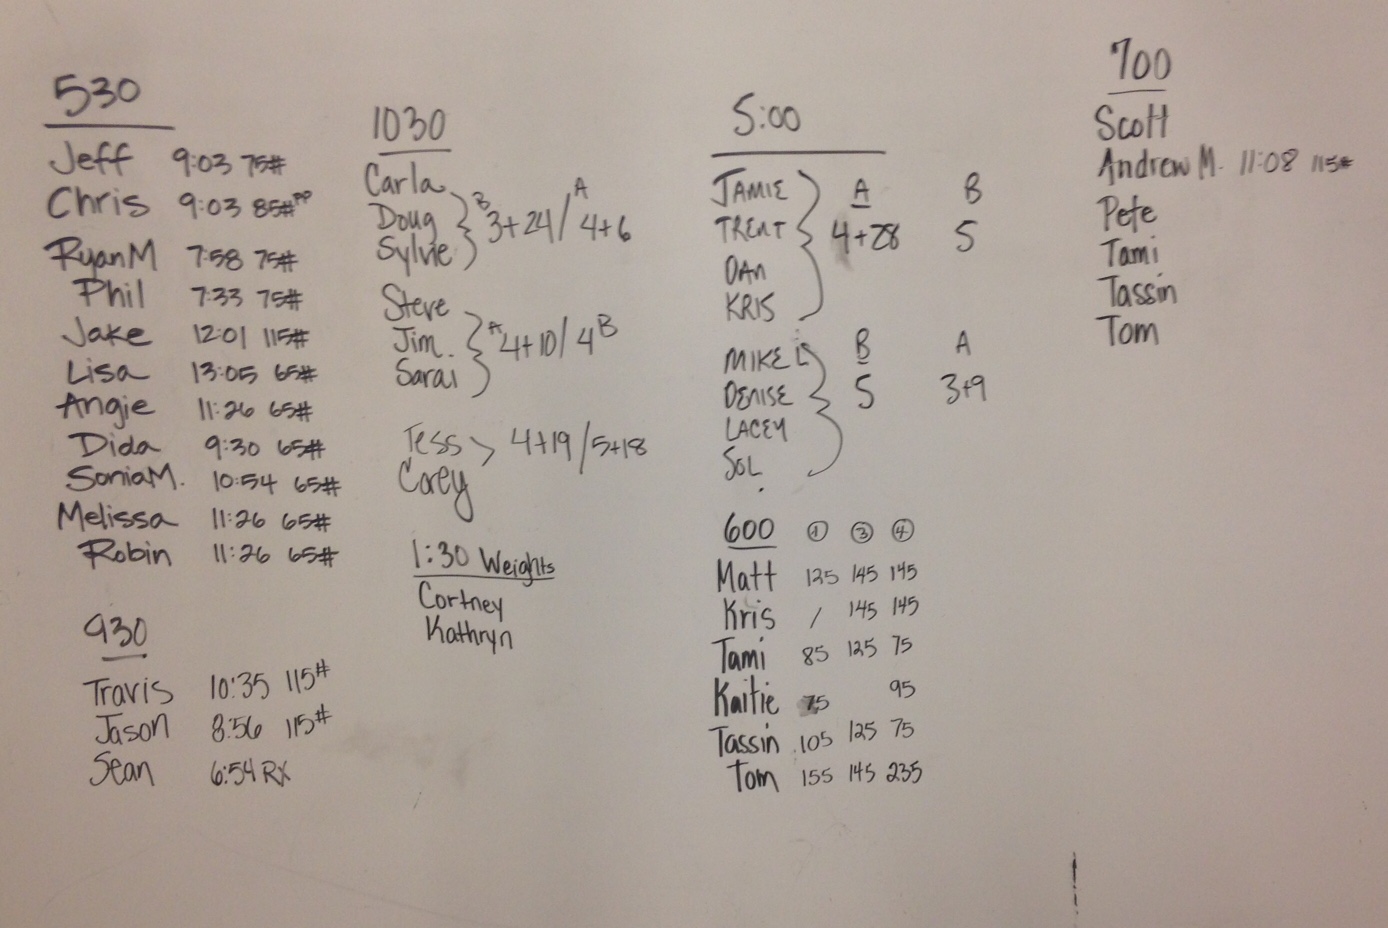 530
Jeff 9:03 75#
Chris 9:03 85# PP
Ryan M 7:58 75#
Phil 7:33 75#
Jake 12:01 115#
Lisa 13:05 65#
Angie 11:26 65#
Dida 9:30 65#
Sonia M. 10:54 65#
Melissa 11:26 65#
Robin 11:26 65#
930
Travis 10:35 115#
Jason 8:56 115#
Sean 6:54 RX
1030
Carla
Doug B 3+24 / A 4+6
Sylvie
Steve
Jim A 4+10 / 4 B
Sarai
Tess 4+19 / 5+18
Corey
1:30 Weights
Cortney
Kathryn
5:00
JAMIE A B
TRENT 4+28 5
DAN
KRIS
MIKE L B A
DENISE 5 3+9
LACEY
SOL
600 1 3 4
Matt 125 145 145
Kris / 145 145
Tami 85 125 75
Kaitie 75 95
Tassin 105 125 75
Tom 155 145 235
700
Scott
Andrew M. 11:08 115#
Pete
Tami
Tassin
Tom